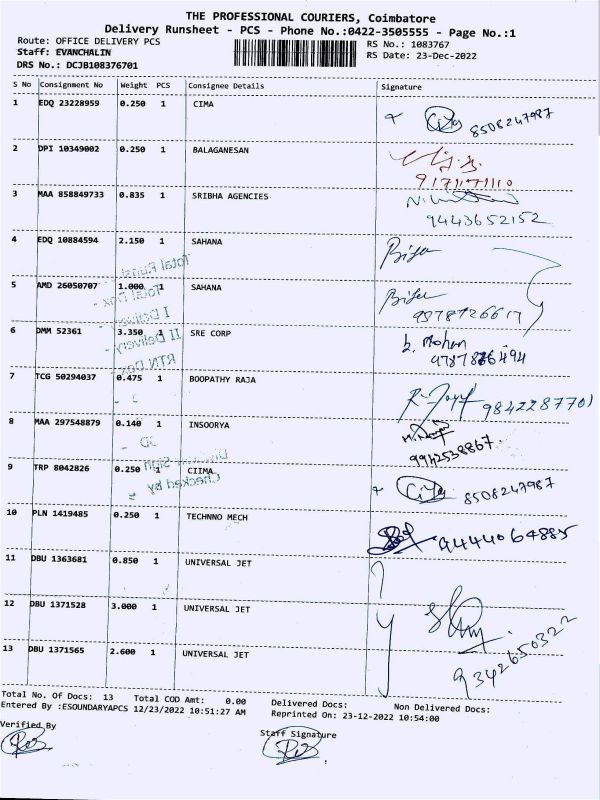 THE PROFESSIONAL COURIERS, Coimbatore
Delivery Runsheet - PCS - Phone No.:0422-3505555 - Page No.:1
Route: OFFICE DELIVERY PCS RS No.: 1083767
Staff: EVANCHALIN RS Date: 23-Dec-2022
DRS No.: DCJB108376701
S No Consignment No Weight PCS Consignee Details Signature
1 EDQ 23228959 0.250 1 CIMA
8508247987
2 DPI 10349002 0.250 1 BALAGANESAN
9171171110
3 MAA 858849733 0.835 1 SRIBHA AGENCIES
9443652152
4 EDQ 10884594 2.150 1 SAHANA
5 AMD 26050707 1.000 1 SAHANA
6 DMM 52361 3.350 1 SRE CORP
b. Mohan
7 TCG 50294037 0.475 1 BOOPATHY RAJA
9842287701
8 MAA 297548879 0.140 1 INSOORYA
9942538867
9 TRP 8042826 0.250 1 CIIMA
8508247987
10 PLN 1419485 0.250 1 TECHNNO MECH
9444064885
11 DBU 1363681 0.850 1 UNIVERSAL JET
12 DBU 1371528 3.000 1 UNIVERSAL JET
13 DBU 1371565 2.600 1 UNIVERSAL JET
9342650322
Total No. Of Docs: 13 Total COD Amt: 0.00 Delivered Docs: Non Delivered Docs:
Entered By :ESOUNDARYAPCS 12/23/2022 10:51:27 AM Reprinted On: 23-12-2022 10:54:00
Verified By Staff Signature